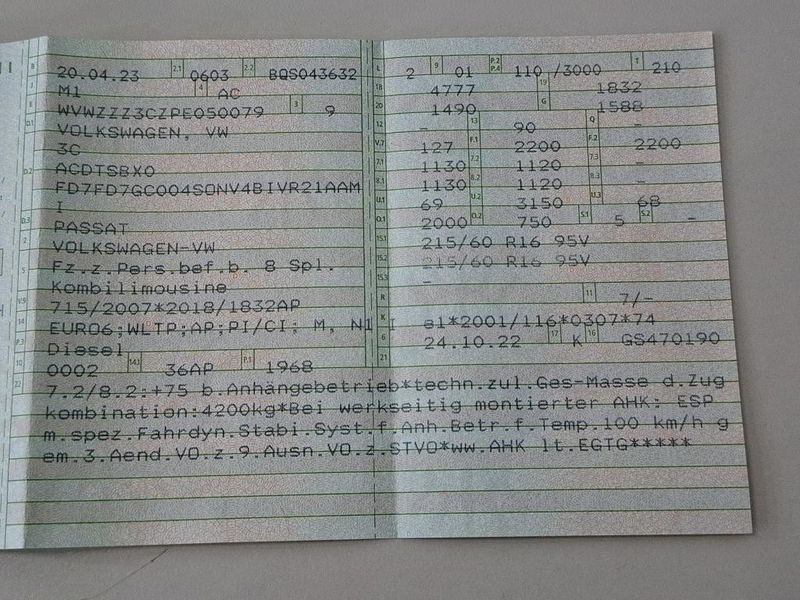 B 20.04.23 2.1 0603 2.2 BQS043632
J M1 4 AC
E WVWZZZ3CZPE050079 3 9
D.1 VOLKSWAGEN, VW
3C
D.2 ACDTSBX0
FD7FD7GC004SONV4BIVR21AAM
I
D.3 PASSAT
2 VOLKSWAGEN-VW
5 Fz.z.Pers.bef.b. 8 Spl.
Kombilimousine
V.9 715/2007*2018/1832AP
14 EURO6;WLTP;AP;PI/CI; M, N1 I
P.3 Diesel
10 0002 14.1 36AP P.1 1968
22 7.2/8.2:+75 b.Anhängebetrieb*techn.zul.Ges-Masse d.Zug
kombination:4200kg*Bei werkseitig montierter AHK: ESP
m.spez.Fahrdyn.Stabi.Syst.f.Anh.Betr.f.Temp.100 km/h g
em.3.Aend.VO.z.9.Ausn.VO.z.STVO*ww.AHK lt.EGTG*****
L 2 9 01 P.2 P.4 110 /3000 T 210
18 4777 19 1832
20 1490 G 1588
12 - 13 90 Q -
V.7 127 F.1 2200 F.2 2200
7.1 1130 7.2 1120 7.3 -
8.1 1130 8.2 1120 8.3 -
U.1 69 U.2 3150 U.3 68
O.1 2000 O.2 750 S.1 5 S.2 -
15.1 215/60 R16 95V
15.2 215/60 R16 95V
15.3 -
R 11 7/-
K e1*2001/116*0307*74
6 24.10.22 17 K 16 GS470190
21